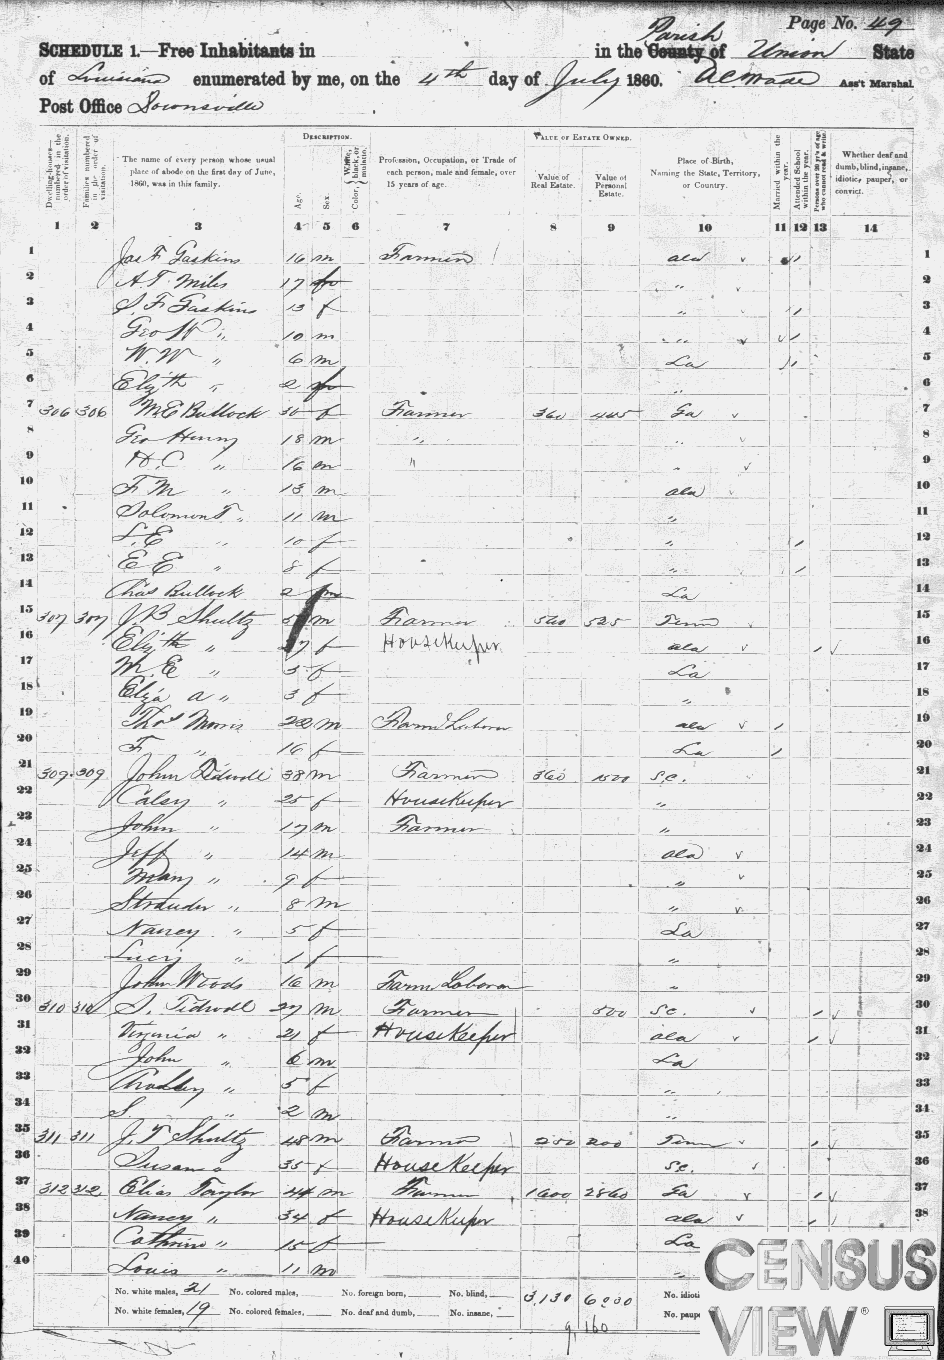 Page No. 49
SCHEDULE 1.—Free Inhabitants in in the County of Parish Union State
of Louisiana enumerated by me, on the 4th day of July 1860. Ass't Marshal.
Post Office Downsville
DESCRIPTION. VALUE OF ESTATE OWNED.
Dwelling-houses—numbered in the order of visitation.
Families numbered in the order of visitation.
The name of every person whose usual place of abode on the first day of June, 1860, was in this family.
Age.
Sex.
Color, White, black, or mulatto.
Profession, Occupation, or Trade of each person, male and female, over 15 years of age.
Value of Real Estate.
Value of Personal Estate.
Place of Birth, Naming the State, Territory, or Country.
Married within the year.
Attended School within the year.
Persons over 20 y'rs of age who cannot read & write.
Whether deaf and dumb, blind, insane, idiotic, pauper, or convict.
1 2 3 4 5 6 7 8 9 10 11 12 13 14
1 Jas F Gaskins 16 m Farmer ala / 1
2 A. T. Miles 17 f " 2
3 S. F. Gaskins 13 f " / 3
4 Geo W " 10 m " / 4
5 W. W " 6 m La / 5
6 Elizth " 2 f " 6
7 306 306 M. E Bullock 30 f Farmer 360 445 Ga 7
8 Geo Henry 18 m " " 8
9 H. C " 16 m " " 9
10 F M " 13 m ala 10
11 Solomon T " 11 m " 11
12 L. E " 10 f " / 12
13 E E " 8 f " / 13
14 Chas Bullock 2 m La 14
15 307 307 J. B Shultz m Farmer 560 525 Tenn 15
16 Elizth " 27 f Housekeeper ala / 16
17 M. E " 5 f La 17
18 Eliza a " 3 f " 18
19 Thos Morris 22 m Farm Laborer ala / 19
20 F " 16 f La / 20
21 309 309 John Tidwell 38 m Farmer 360 1500 S.C. 21
22 Calsy " 25 f Housekeeper " 22
23 John " 17 m Farmer " 23
24 Jeff " 14 m ala 24
25 Mary " 9 f " 25
26 Strauder " 8 m " 26
27 Nancy " 5 f La 27
28 Lucy " 1 f " 28
29 John Woods 16 m Farm Laborer " 29
30 310 310 S. Tidwell 27 m Farmer 500 S.C. / 30
31 Virginia " 21 f Housekeeper ala / 31
32 John " 6 m La 32
33 " 5 f " 33
34 S. " 2 m " 34
35 311 311 J. T Shultz 48 m Farmer 250 200 Tenn / 35
36 Susan 35 f Housekeeper S.C. 36
37 312 312 Elias Taylor 44 m Farmer 1600 2860 Ga / 37
38 Nancy " 34 f Housekeeper ala / 38
39 Cathrine " 15 f La
40 Louis " 11 m "
No. white males, 21 No. colored males, No. foreign born, No. blind, 3,130 6030 No. idioti
No. white females, 19 No. colored females, No. deaf and dumb, No. insane, No. paup
9,160
CENSUS
VIEW®